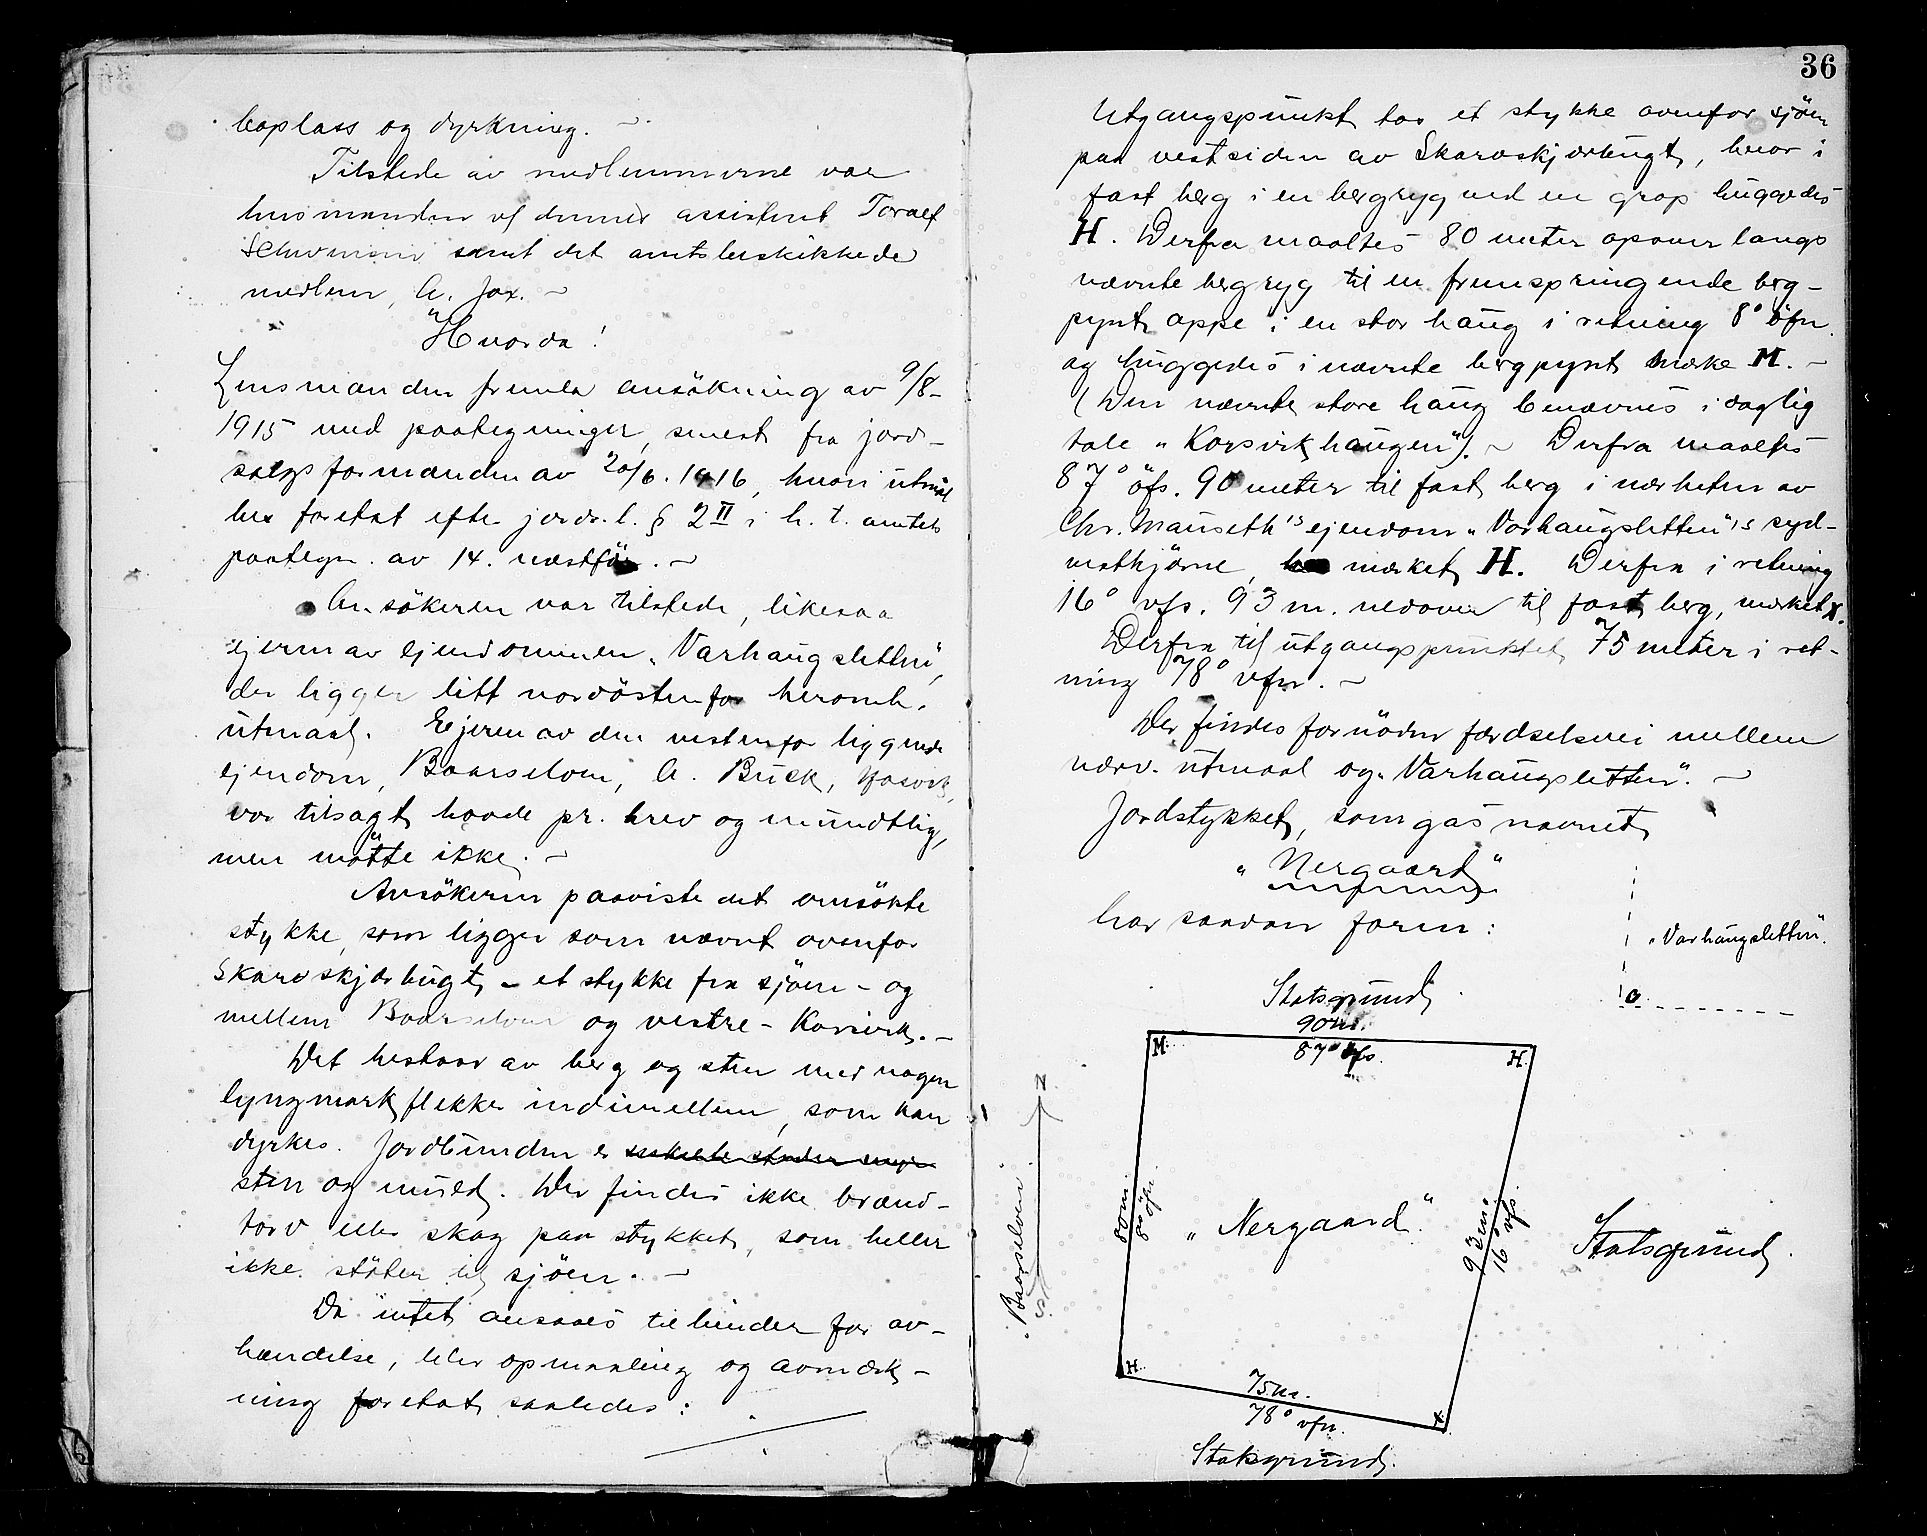 boplass og dyrkning. –
Tilstede av medlemmerne var
lensmanden ved dennes assistent Toralf
Schumann samt det amtsbeskikkede
medlem, A. Jax. –
Hvorda!
Lensmanden fremla ansökning av 9/8-
1915 med paategninger, senest fra jord-
salgsformanden av 20/6. 1916, hvori utmaal
bes foretat efter jords. l. § 2 II i h. t. amtets
paategn. av 14. næstför. –
Ansökeren var tilstede, likesaa
ejeren av ejendommen „Varhaugsletten",
der ligger litt nordöstenfor heromh.
utmaal. Ejeren av den vestenfor liggende
ejendom, Baarselven, A. Buck,
var tilsagt baade pr. brev og mundtlig,
men mötte ikke. –
Ansökeren paaviste det ansökte
stykke, som ligger som nævnt ovenfor
Skarvskjærbugt, – et stykke fra sjöen – og
mellem Baarselven og vestre – Korsvik. –
Det bestaar av berg og sten med nogen
lyngmarkflekker indimellem, som kan
dyrkes. Jordbunden er enkelte steder myr
sten og muld. Der findes ikke brænd-
torv eller skog paa stykket, som heller
ikke stöter til sjöen. –
Da intet ansaaes til hinder for av-
hændelse, blev opmaaling og avmærk-
ning foretat saaledes:
36
Utgangspunkt tas et stykke ovenfor sjöen
paa vestsiden av Skarvskjærbugt, hvor i
fast berg i en bergryg ved en grop huggedes
H. Derfra maaltes 80 meter opover langs
nævnte bergryg til en fremspringende berg-
pynt oppe i en stor haug i retning 8° öfn.
og huggedes i nævnte bergpynt merke M. –
(Den nævnte store haug benævnes i daglig
tale „Korsvikhaugen"). – Derfra maaltes
87° öfs. 90 meter til fast berg i nærheten av
Chr. Mauseth's ejendom „Varhaugsletten"s syd-
vesthjörne, merket H. Derfra i retning
16° vfs. 93 m. nedover til fast berg, merket X.
Derfra til utgangspunktet 75 meter i ret-
ning 78° vfn. –
Der findes fornöden færdselsvei mellem
nærv. utmaal og „Varhaugsletten". –
Jordstykket, som gaes navnet
„Nergaard"
har saadan form:
„Varhaugsletten".
Statsgrund.
90 m.
87° öfs.
M.
H.
N
80 m.
8° öfn.
„Nergaard."
93 m.
16° vfs.
Statsgrund.
Baarselven
S
H.
75 m.
78° vfn.
X
Statsgrund.